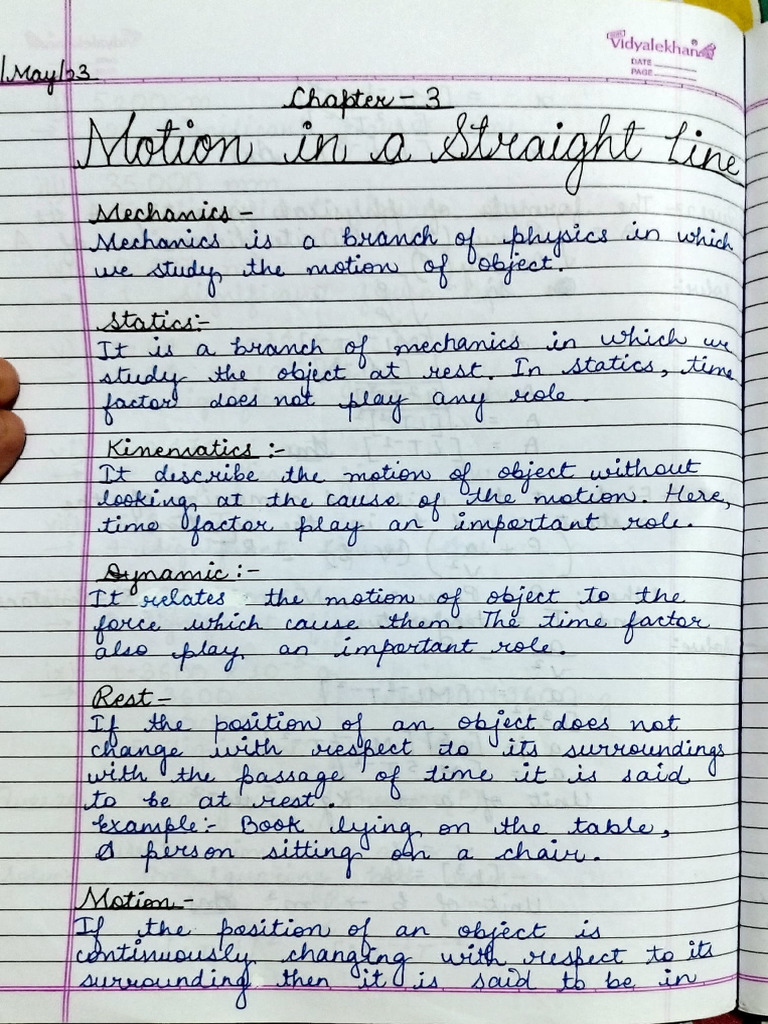 Vidyalekhan
DATE
PAGE
/May/23
Chapter - 3
Motion in a Straight Line
Mechanics -
Mechanics is a branch of physics in which
we study the motion of object.
Statics:-
It is a branch of mechanics in which we
study the object at rest. In statics, time
factor does not play any role.
Kinematics :-
It describe the motion of object without
looking at the cause of the motion. Here,
time factor play an important role.
Dynamic :-
It relates the motion of object to the
force which cause them The time factor
also play an important role.
Rest -
If the position of an object does not
change with respect to its surroundings
with the passage of time it is said
to be at rest.
Example:- Book lying on the table,
A person sitting on a chair.
Motion -
If the position of an object is
continuously changing with respect to its
surrounding then it is said to be in